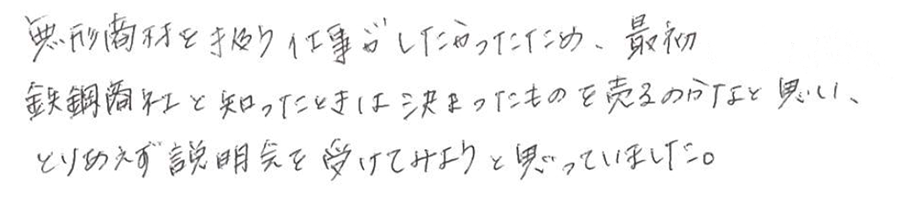 無形商材を扱う仕事がしたかったため、最初
鉄鋼商社と知ったときは決まったものを売るのかなと思い、
とりあえず説明会を受けてみようと思っていました。